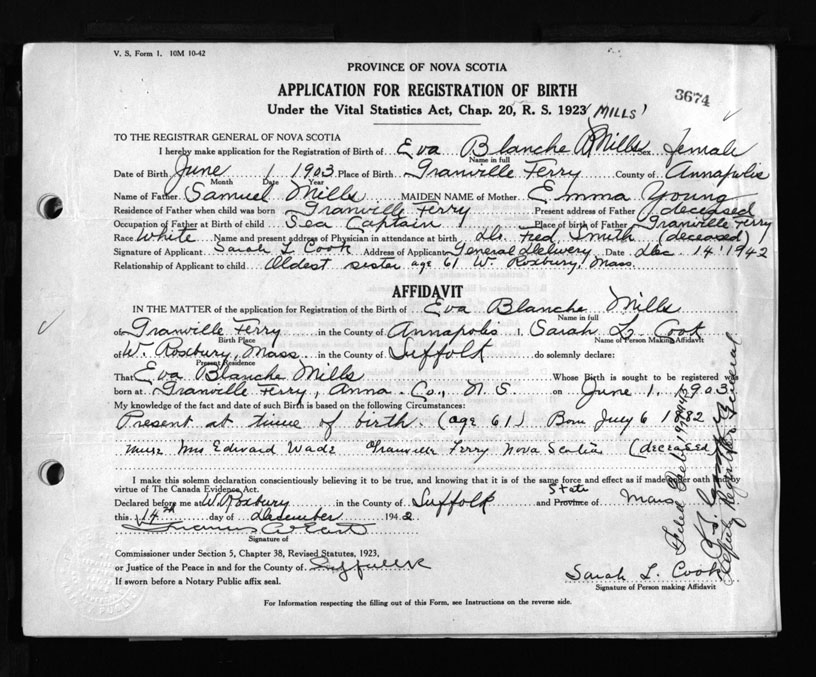 V. S. Form 1. 10M 10-42
PROVINCE OF NOVA SCOTIA
3674
APPLICATION FOR REGISTRATION OF BIRTH
Under the Vital Statistics Act, Chap. 20, R. S. 1923
(MILLS)
TO THE REGISTRAR GENERAL OF NOVA SCOTIA
I hereby make application for the Registration of Birth of Eva Blanche Mills Sex female
Name in full
Date of Birth June 1 1903 Place of Birth Granville Ferry County of Annapolis
Month Date Year
Name of Father Samuel Mills MAIDEN NAME of Mother Emma Young
Residence of Father when child was born Granville Ferry Present address of Father deceased
Occupation of Father at Birth of child Sea Captain Place of birth of Father Granville Ferry
Race White Name and present address of Physician in attendance at birth Ds. Fred Smith (deceased)
Signature of Applicant Sarah L Cook Address of Applicant General Delivery Date Dec 14 1942
Relationship of Applicant to child Oldest sister age 61 W. Roxbury, Mass.
AFFIDAVIT
IN THE MATTER of the application for Registration of the Birth of Eva Blanche Mills
Name in full
of Granville Ferry in the County of Annapolis I, Sarah L. Cook
Birth Place Name of Person Making Affidavit
of W. Roxbury, Mass in the County of Suffolk do solemnly declare:
Present Residence
That Eva Blanche Mills Whose Birth is sought to be registered was
born at Granville Ferry, Anna. Co., N. S. on June 1, 1903
My knowledge of the fact and date of such Birth is based on the following Circumstances:
Present at time of birth. (age 61) Born July 6 1882
nurse Mrs Edward Wade Granville Ferry Nova Scotia (deceased)
I make this solemn declaration conscientiously believing it to be true, and knowing that it is of the same force and effect as if made under oath and by
virtue of The Canada Evidence Act.
State
Declared before me at W. Roxbury in the County of Suffolk and Province of Mass
this 14th day of December 1942
Signature of
Commissioner under Section 5, Chapter 38, Revised Statutes, 1923,
or Justice of the Peace in and for the County of Suffolk
If sworn before a Notary Public affix seal.
Sarah L. Cook
Signature of Person making Affidavit
For Information respecting the filling out of this Form, see Instructions on the reverse side.
Filed
Deputy Registrar General